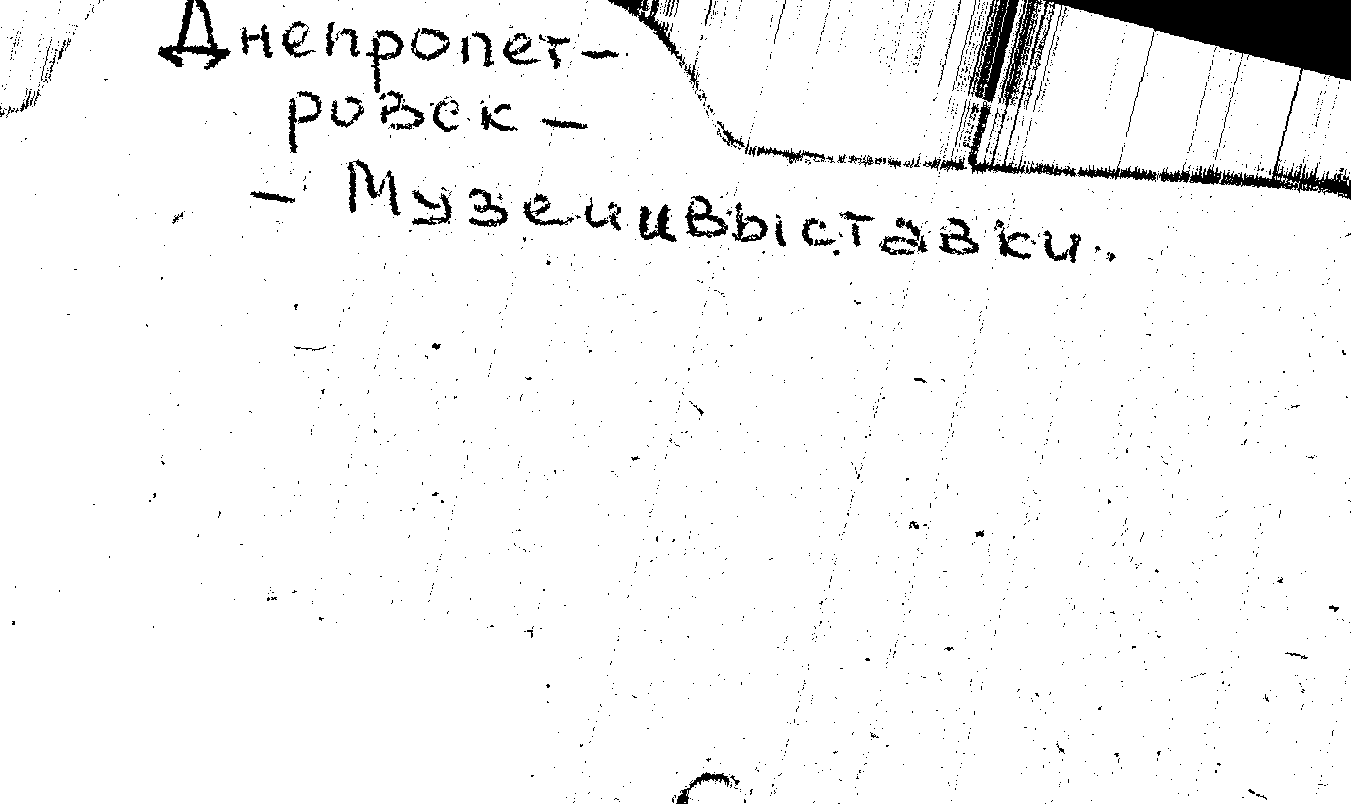 Днепропет-
ровск -
- Музеи и выставки.